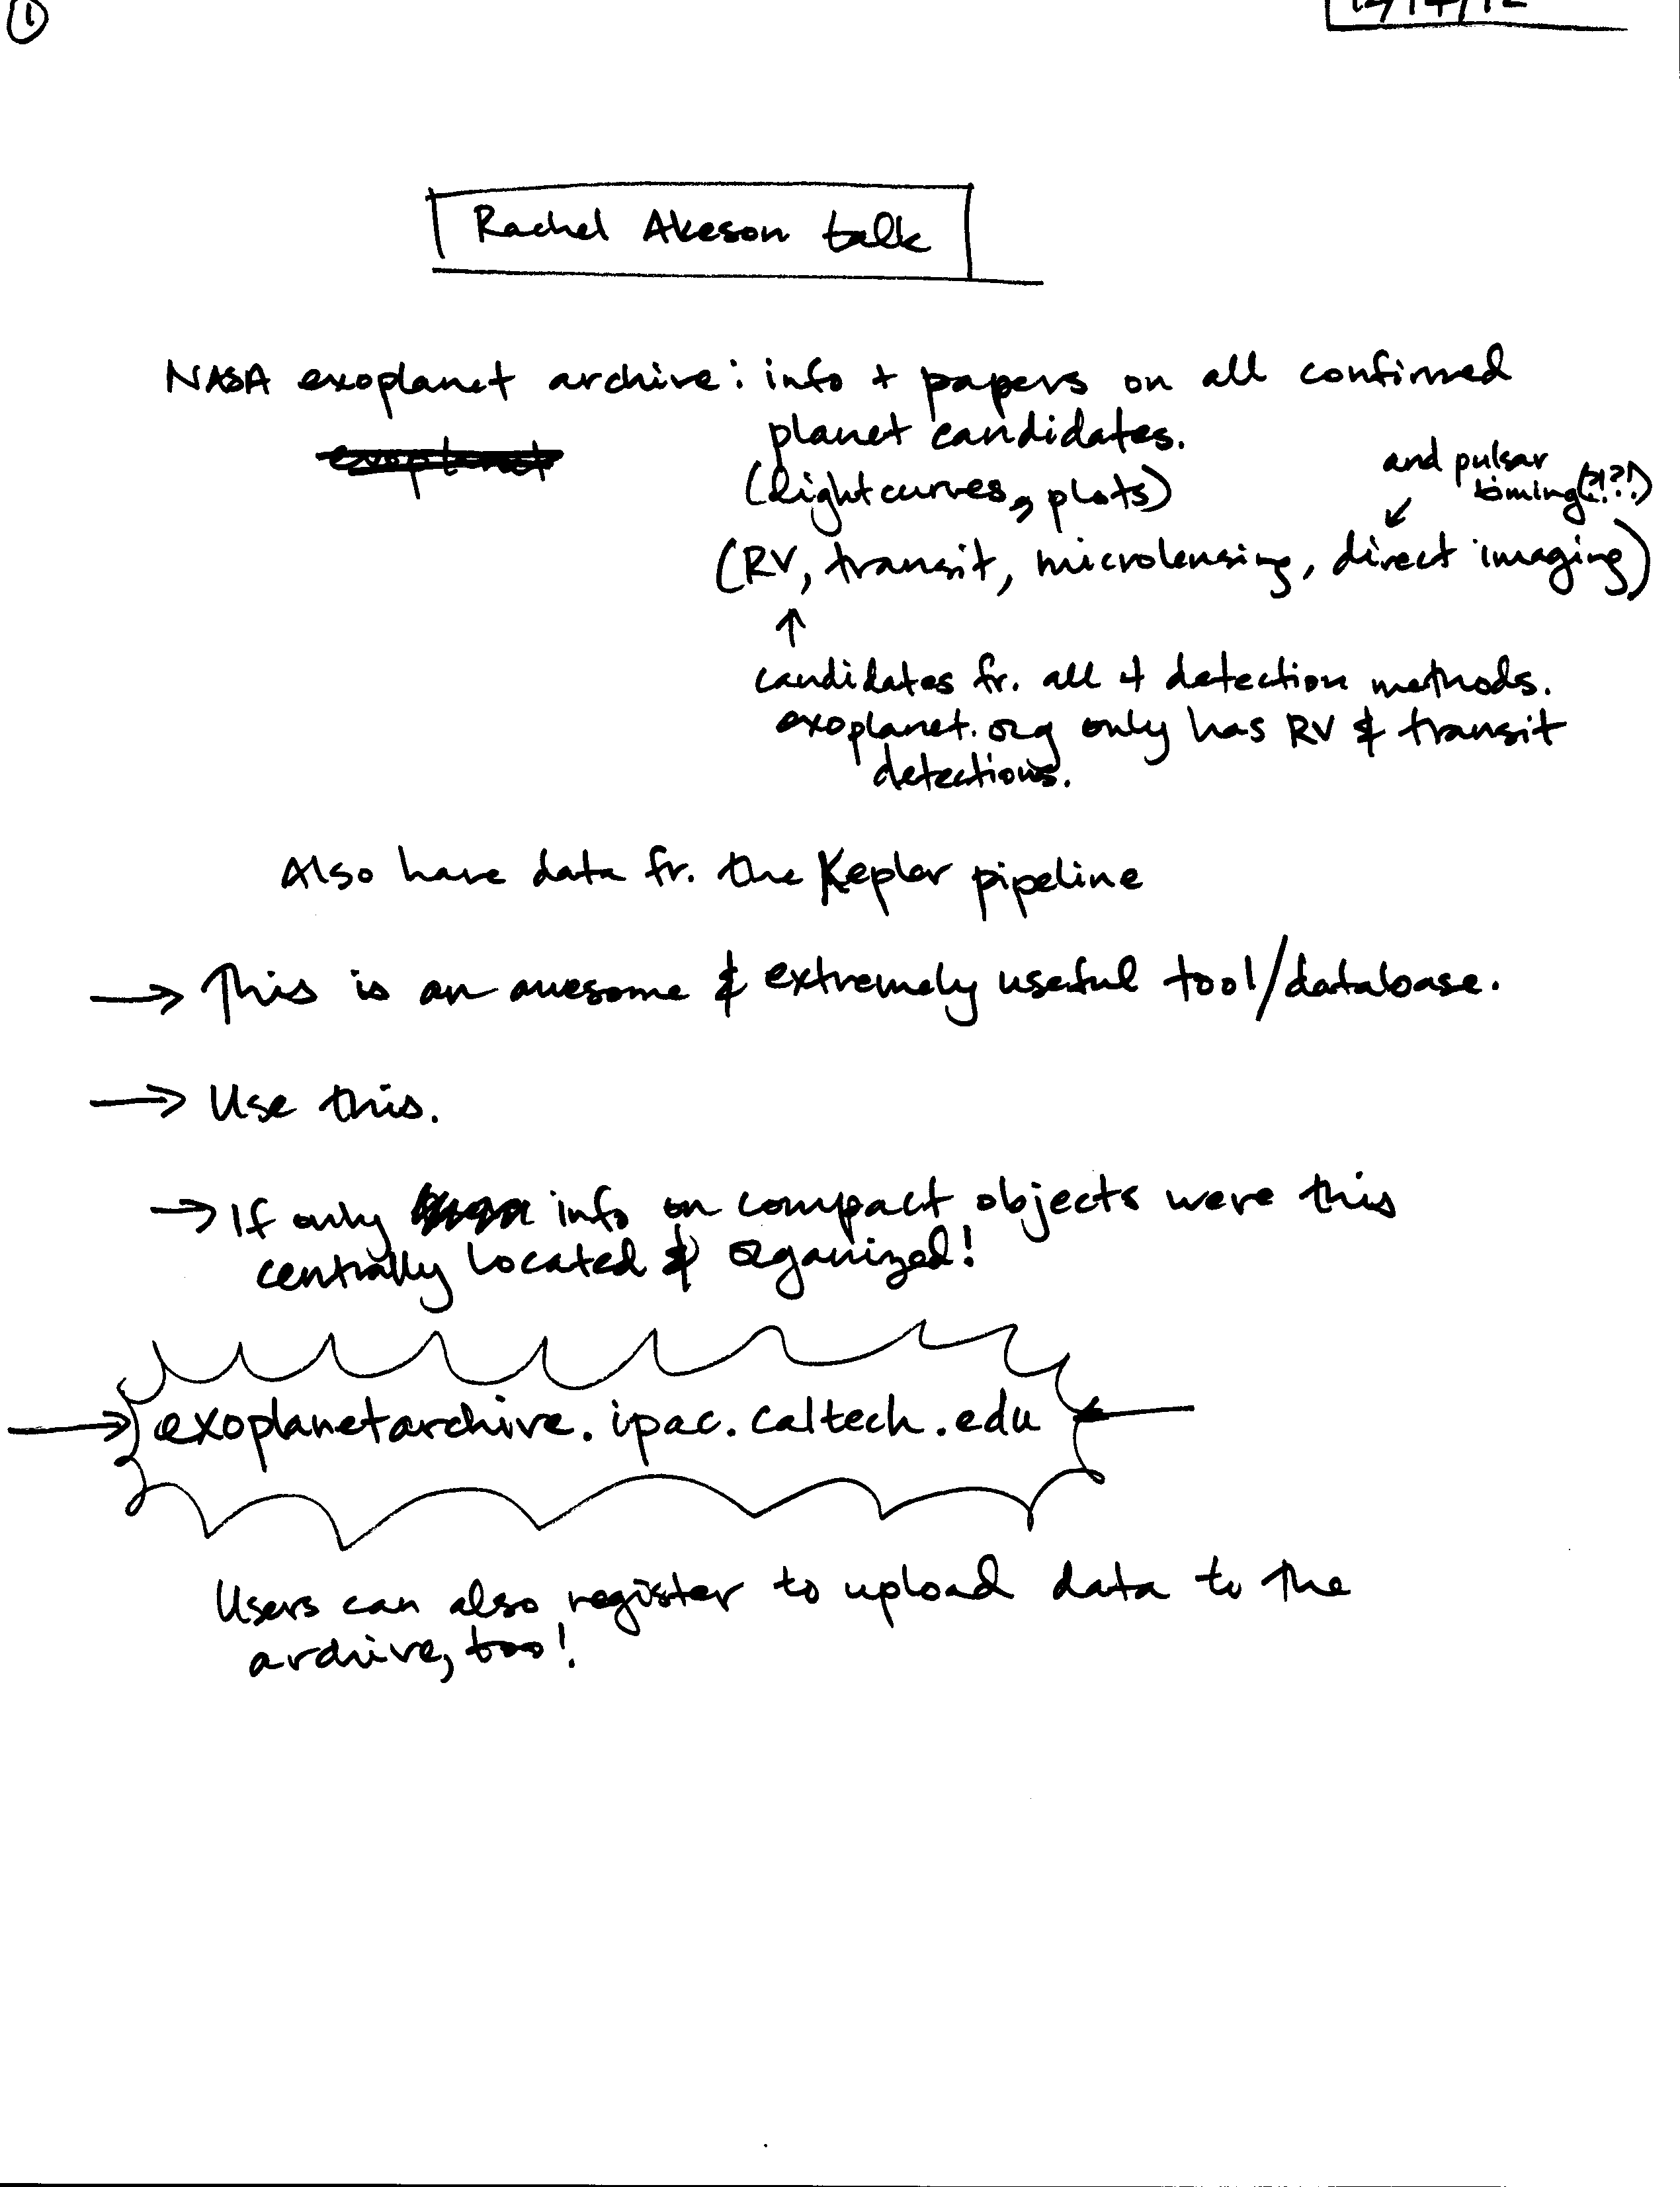 ①
Rachel Akeson talk
NASA exoplanet archive: info + papers on all confirmed
exoplanet
planet candidates.
(lightcurves, plots)
and pulsar
timing(?!?!)
↙
(RV, transit, microlensing, direct imaging)
↑
candidates fr. all 4 detection methods.
exoplanet.org only has RV & transit
detections.
Also have data fr. the Kepler pipeline
→ This is an awesome & extremely useful tool/database.
→ Use this.
→ If only info on compact objects were this
centrally located & organized!
→ exoplanetarchive.ipac.caltech.edu ←
Users can also register to upload data to the
archive, too!